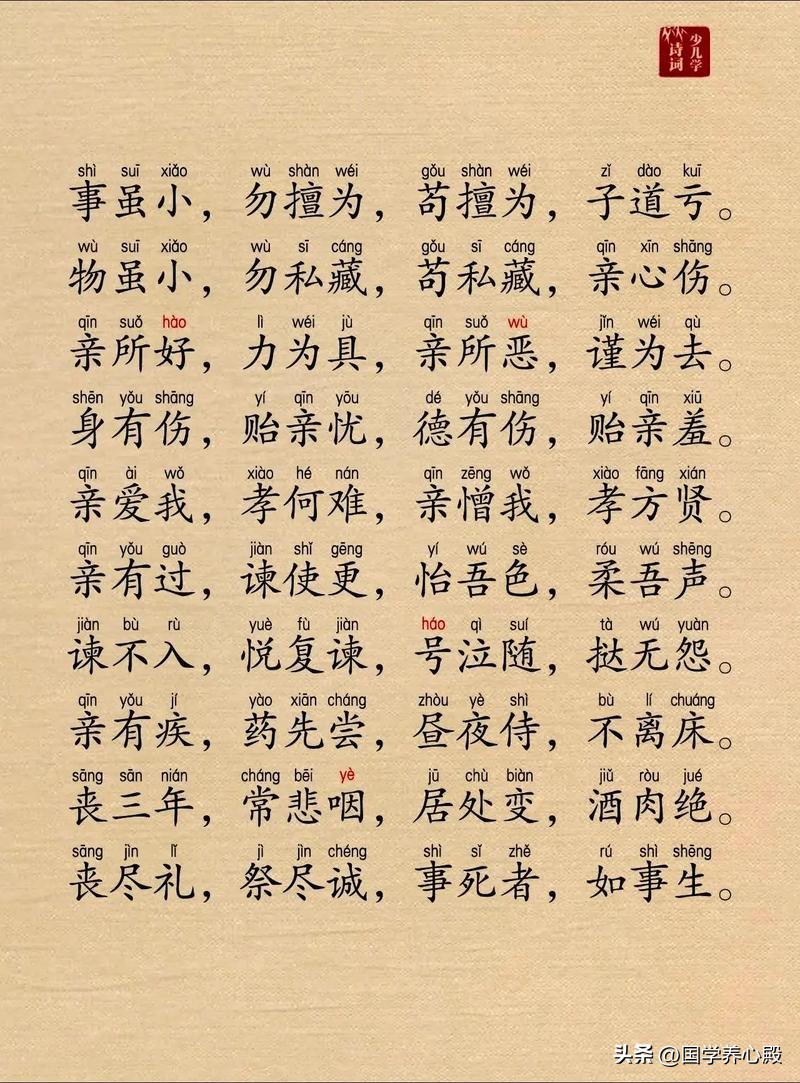 少儿学
诗词
shì suī xiǎo wù shàn wéi gǒu shàn wéi zǐ dào kuī
事虽小，勿擅为，苟擅为，子道亏。
wù suī xiǎo wù sī cáng gǒu sī cáng qīn xīn shāng
物虽小，勿私藏，苟私藏，亲心伤。
qīn suǒ hào lì wéi jù qīn suǒ wù jǐn wéi qù
亲所好，力为具，亲所恶，谨为去。
shēn yǒu shāng yí qīn yōu dé yǒu shāng yí qīn xiū
身有伤，贻亲忧，德有伤，贻亲羞。
qīn ài wǒ xiào hé nán qīn zēng wǒ xiào fāng xián
亲爱我，孝何难，亲憎我，孝方贤。
qīn yǒu guò jiàn shǐ gēng yí wú sè róu wú shēng
亲有过，谏使更，怡吾色，柔吾声。
jiàn bù rù yuè fù jiàn háo qì suí tà wú yuàn
谏不入，悦复谏，号泣随，挞无怨。
qīn yǒu jí yào xiān cháng zhòu yè shì bù lí chuáng
亲有疾，药先尝，昼夜侍，不离床。
sāng sān nián cháng bēi yè jū chù biàn jiǔ ròu jué
丧三年，常悲咽，居处变，酒肉绝。
sāng jìn lǐ jì jìn chéng shì sǐ zhě rú shì shēng
丧尽礼，祭尽诚，事死者，如事生。
头条 @国学养心殿